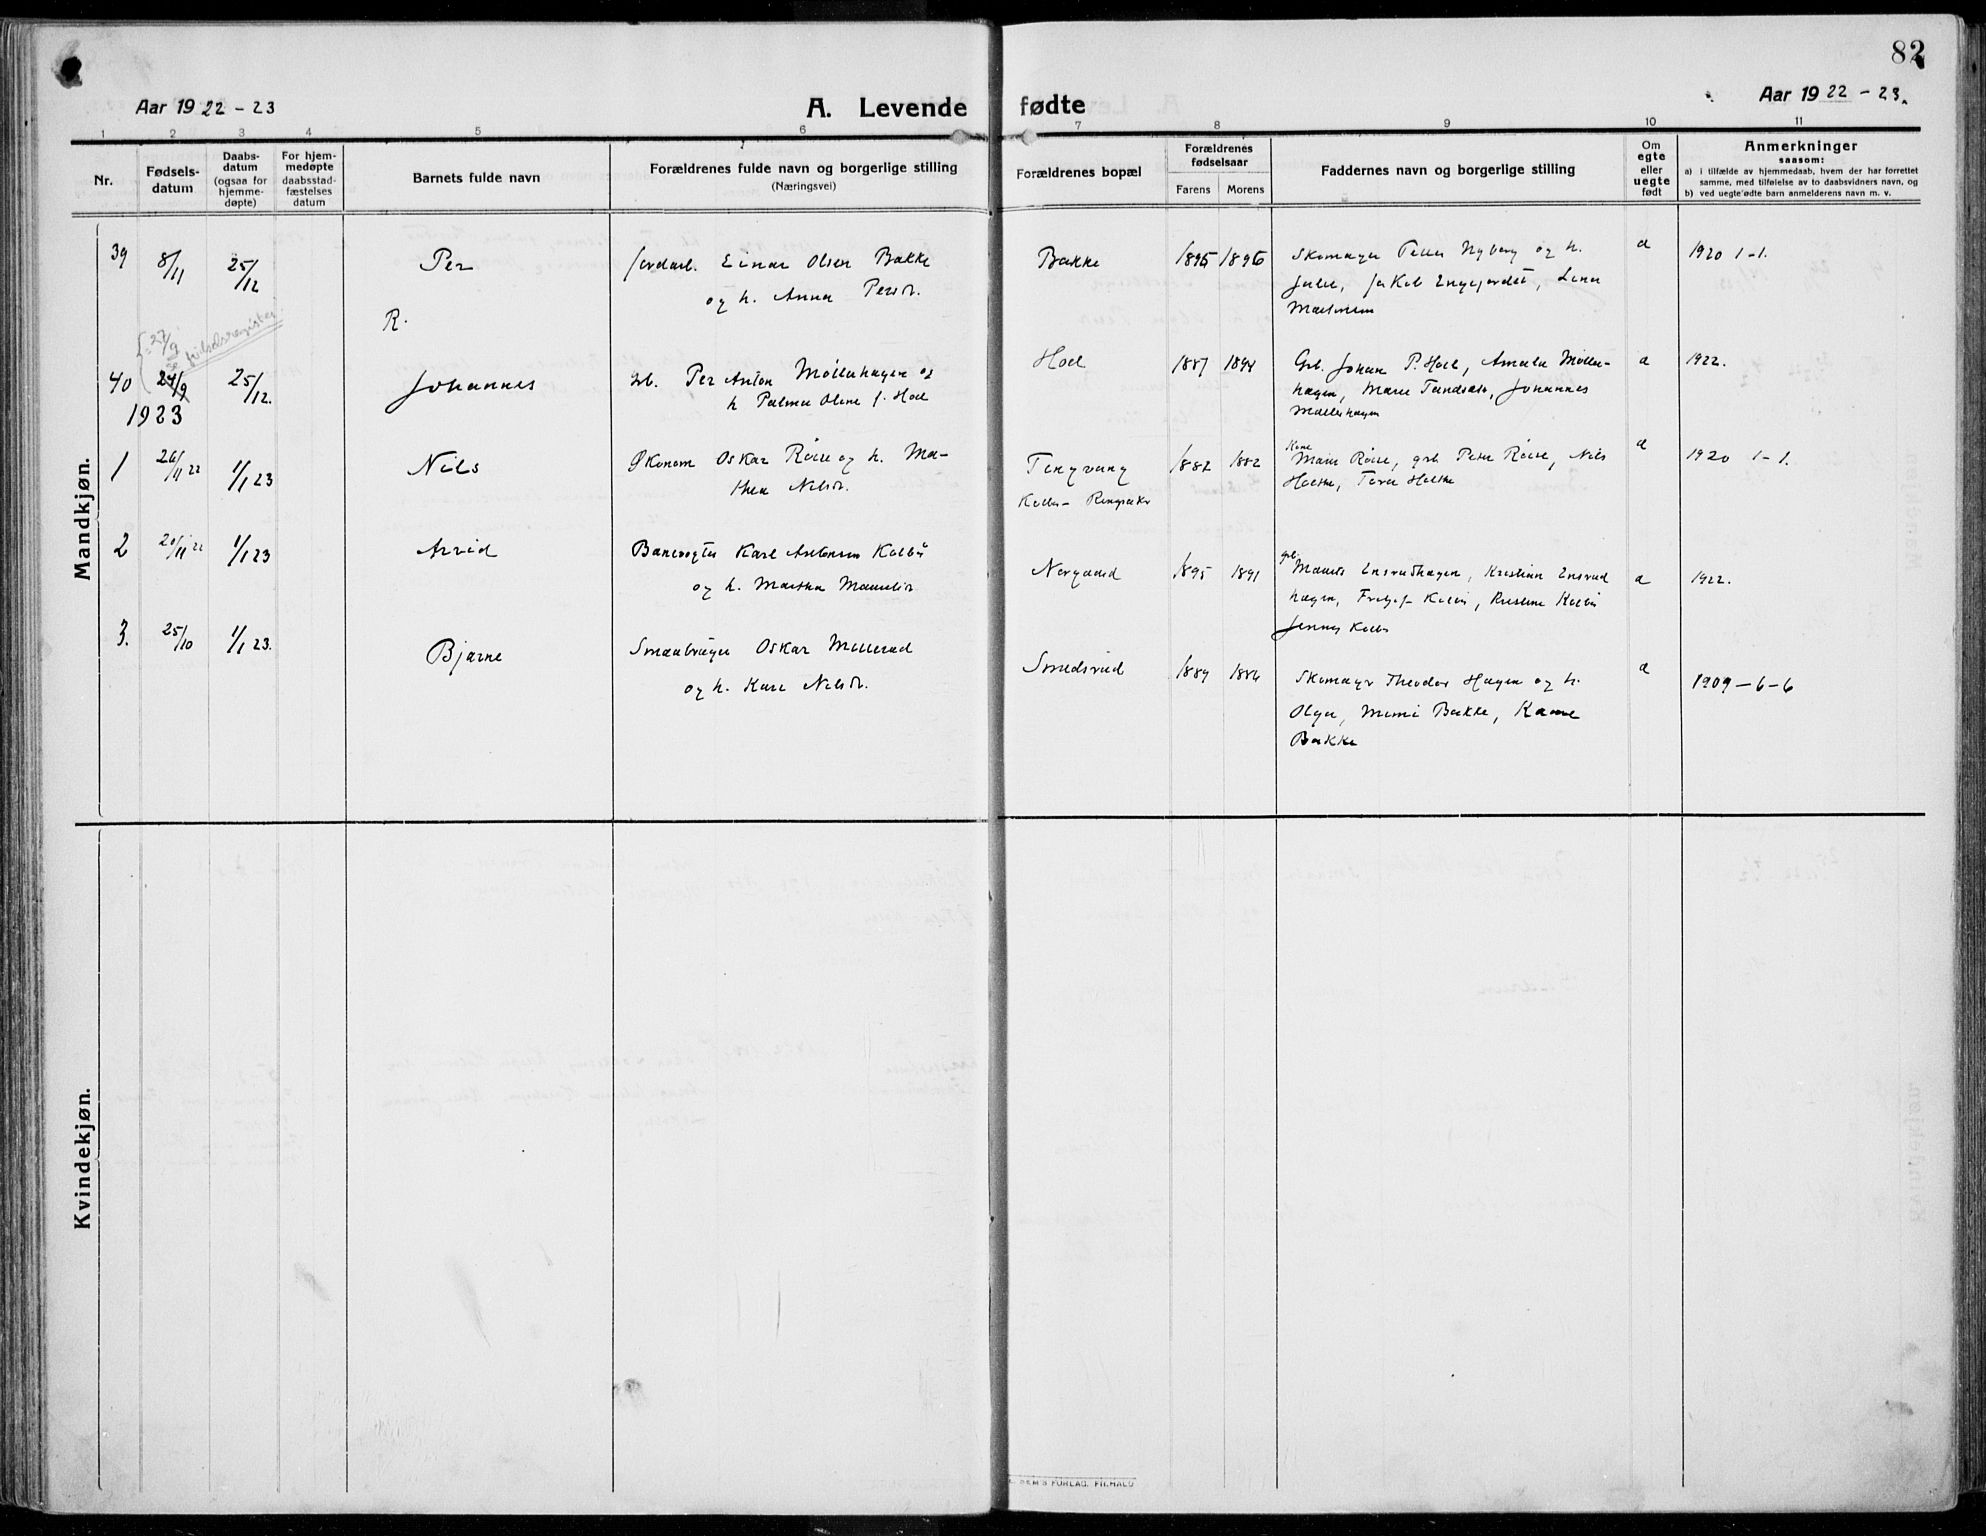 82
Aar 1922 - 23
A. Levende fødte
Aar 1922 - 23.
1 2 3 4 5 6 7 8 9 10 11
Nr.
Fødsels-
datum
Daabs-
datum
(ogsaa for
hjemme-
døpte)
For hjem-
medøpte
daabsstad-
fæstelses
datum
Barnets fulde navn
Forældrenes fulde navn og borgerlige stilling
(Næringsvei)
Forældrenes bopæl
Forældrenes
fødselsaar
Farens Morens
Faddernes navn og borgerlige stilling
Om
egte
eller
uegte
født
Anmerkninger
saasom:
a) i tilfælde av hjemmedaab, hvem der har forrettet
samme, med tilføielse av to daabsvidners navn, og
b) ved uegte fødte barn anmelderens navn m. v.
Mandkjøn.
39 8/11 25/12 Per
R.
Jordarb. Einar Olsen Bakke
og h. Anna Persdr.
Bakke 1895 1896
Skomager Petter Nyberg og h.
Julie, Jakob Engejordet, Lina
a 1920 1-1.
[= 27/9
fødselsregister.
40 24/9 25/12. Johannes
Per Anton Møllerhagen og
h Palma Oline f. Hoel
Hoel 1887 1894
Grb. Johan P. Hoel, Amalie Møller-
hagen, Marie Johannes
Møllerhagen
a 1922.
1923
1 26/11 22 1/1 23 Nils
Økonom Oskar Røise og h. Ma-
thea Nilsdr.
Tingvang
Kolbu - Ringsaker
1882 1882
Kone
Marie Røise, grb. Peter Røise, Nils
Holthe, Tora Holthe
a 1920 1-1.
2 20/11 22 1/1 23 Arvid
Banevogter Karl Antonsen Kolbu
og h. Martha
Nergaard 1895 1891
grb.
Ensrudhagen, Kristian Ensrud
hagen, Fritjof Kolbu, Kristine Kolbu
Jenny Kolbu
a 1922.
3. 25/10 1/1 23. Bjarne
Smaabruger Oskar Millerud
og h. Kari Nilsdr.
Smedsrud 1889 1886
Skomager Theodor Hagen og h.
Olga, Mimi Bakke, Kaare
Bakke
a 1909 - 6 - 6
Kvindekjøn.
SEM'S FORLAG, FR.HALD